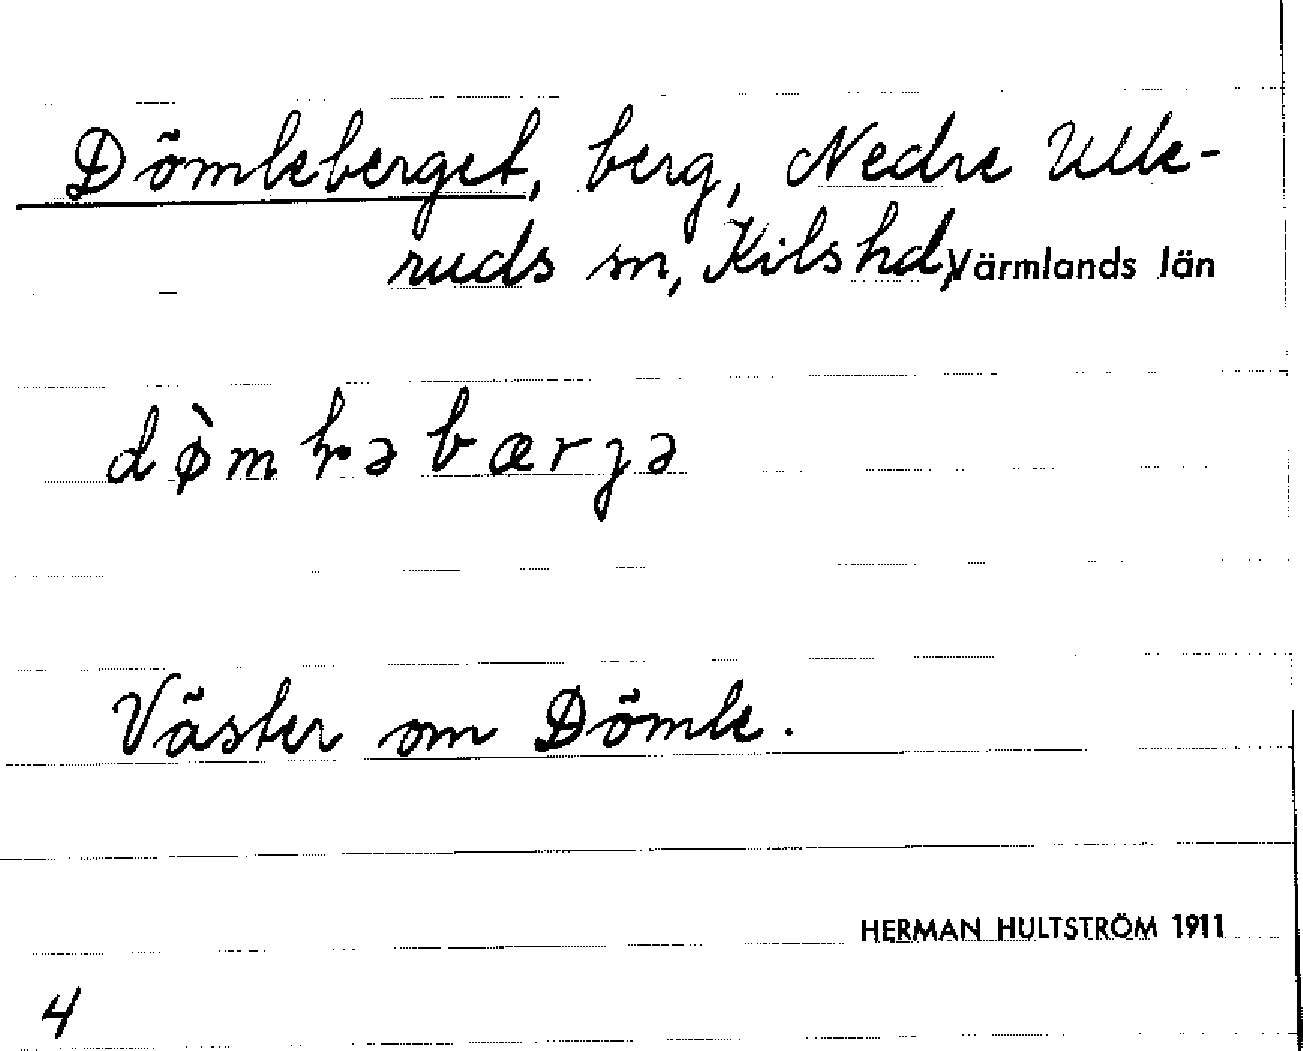 Dömleberget, berg, Nedre Ulle-
ruds sn, Kils hd, Värmlands län
Väster om Dömle.
HERMAN HULTSTRÖM 1911
4